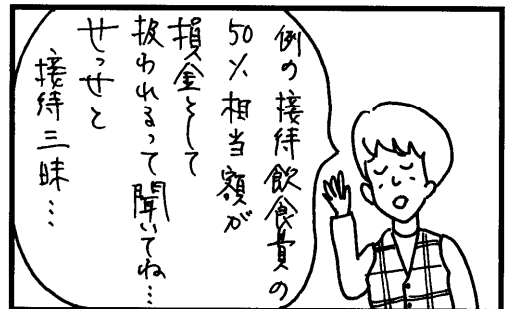 例の接待飲食費の
50%相当額が
損金として
扱われるって聞いてね…
せっせと
接待三昧…